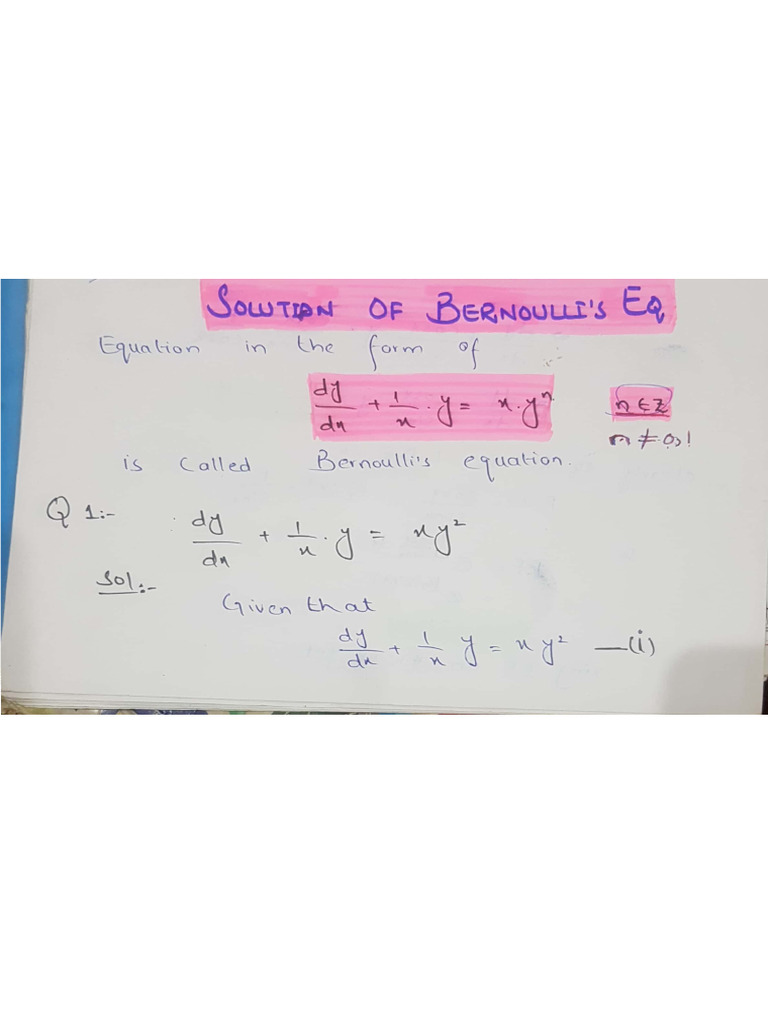 SOLUTION OF BERNOULLI'S EQ
Equation in the form of
dy/dx + 1/x . y = x . yⁿ n ∈ Z
n ≠ 0,1
is called Bernoulli's equation.
Q 1:- dy/dx + 1/x . y = xy²
Sol:-
Given that
dy/dx + 1/x y = x y² —(i)